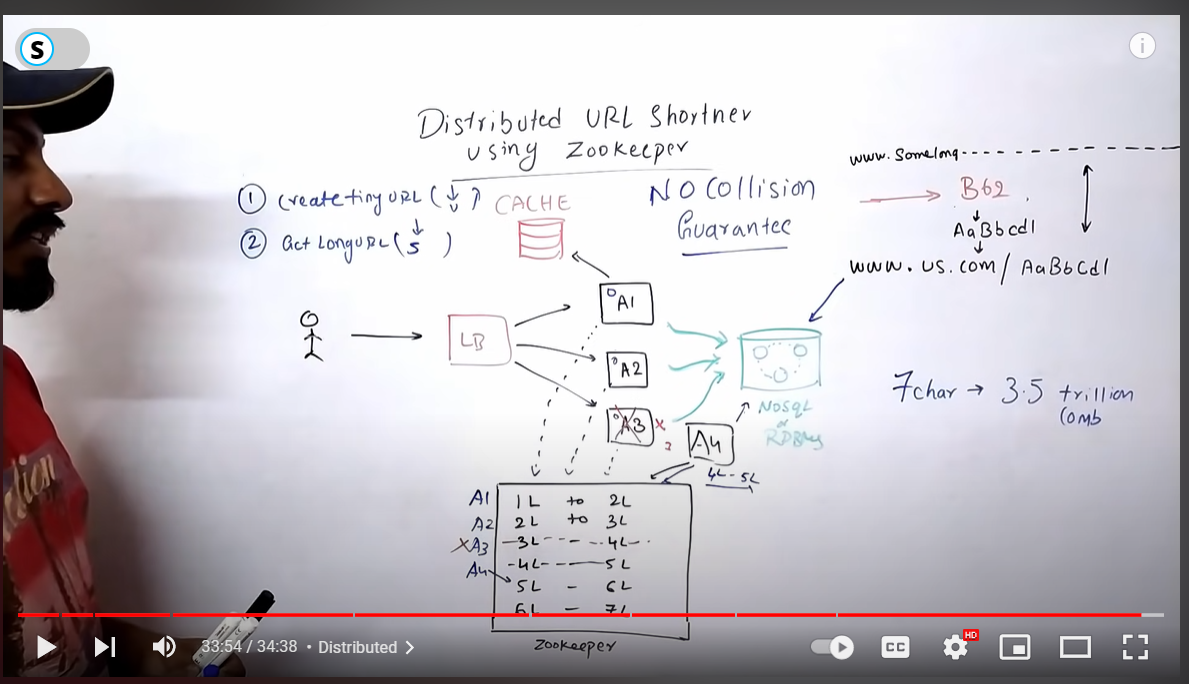 S
Distributed URL Shortner
using Zookeeper
① Create tiny URL (
② Get Long URL (s )
CACHE
NO Collision
Guarantee
www.Somelong
B62
AaBbcd1
www.us.com/AaBbCd1
LB
A1
A2
A3
x
A4
NOSQL
or
RDBMS
7char → 3.5 trillion
Comb
4L - 5L
A1 1L to 2L
A2 2L to 3L
XA3 3L - 4L
4L - 5L
A4 5L - 6L
6L - 7L
Zookeeper
33:54 / 34:38 • Distributed
CC
HD